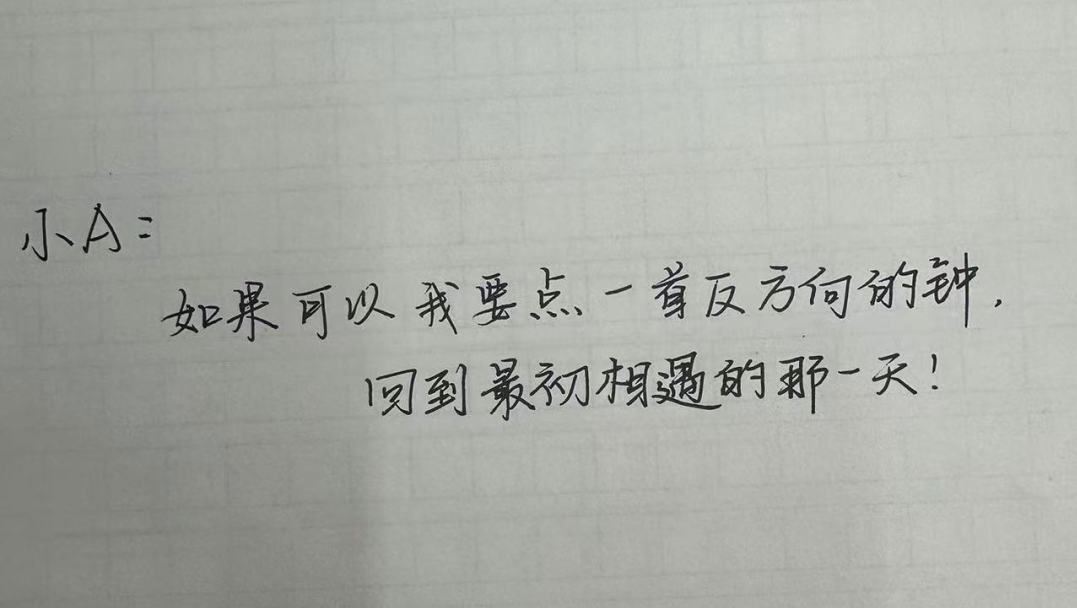 小A:
如果可以我要点一首反方向的钟,
回到最初相遇的那一天!